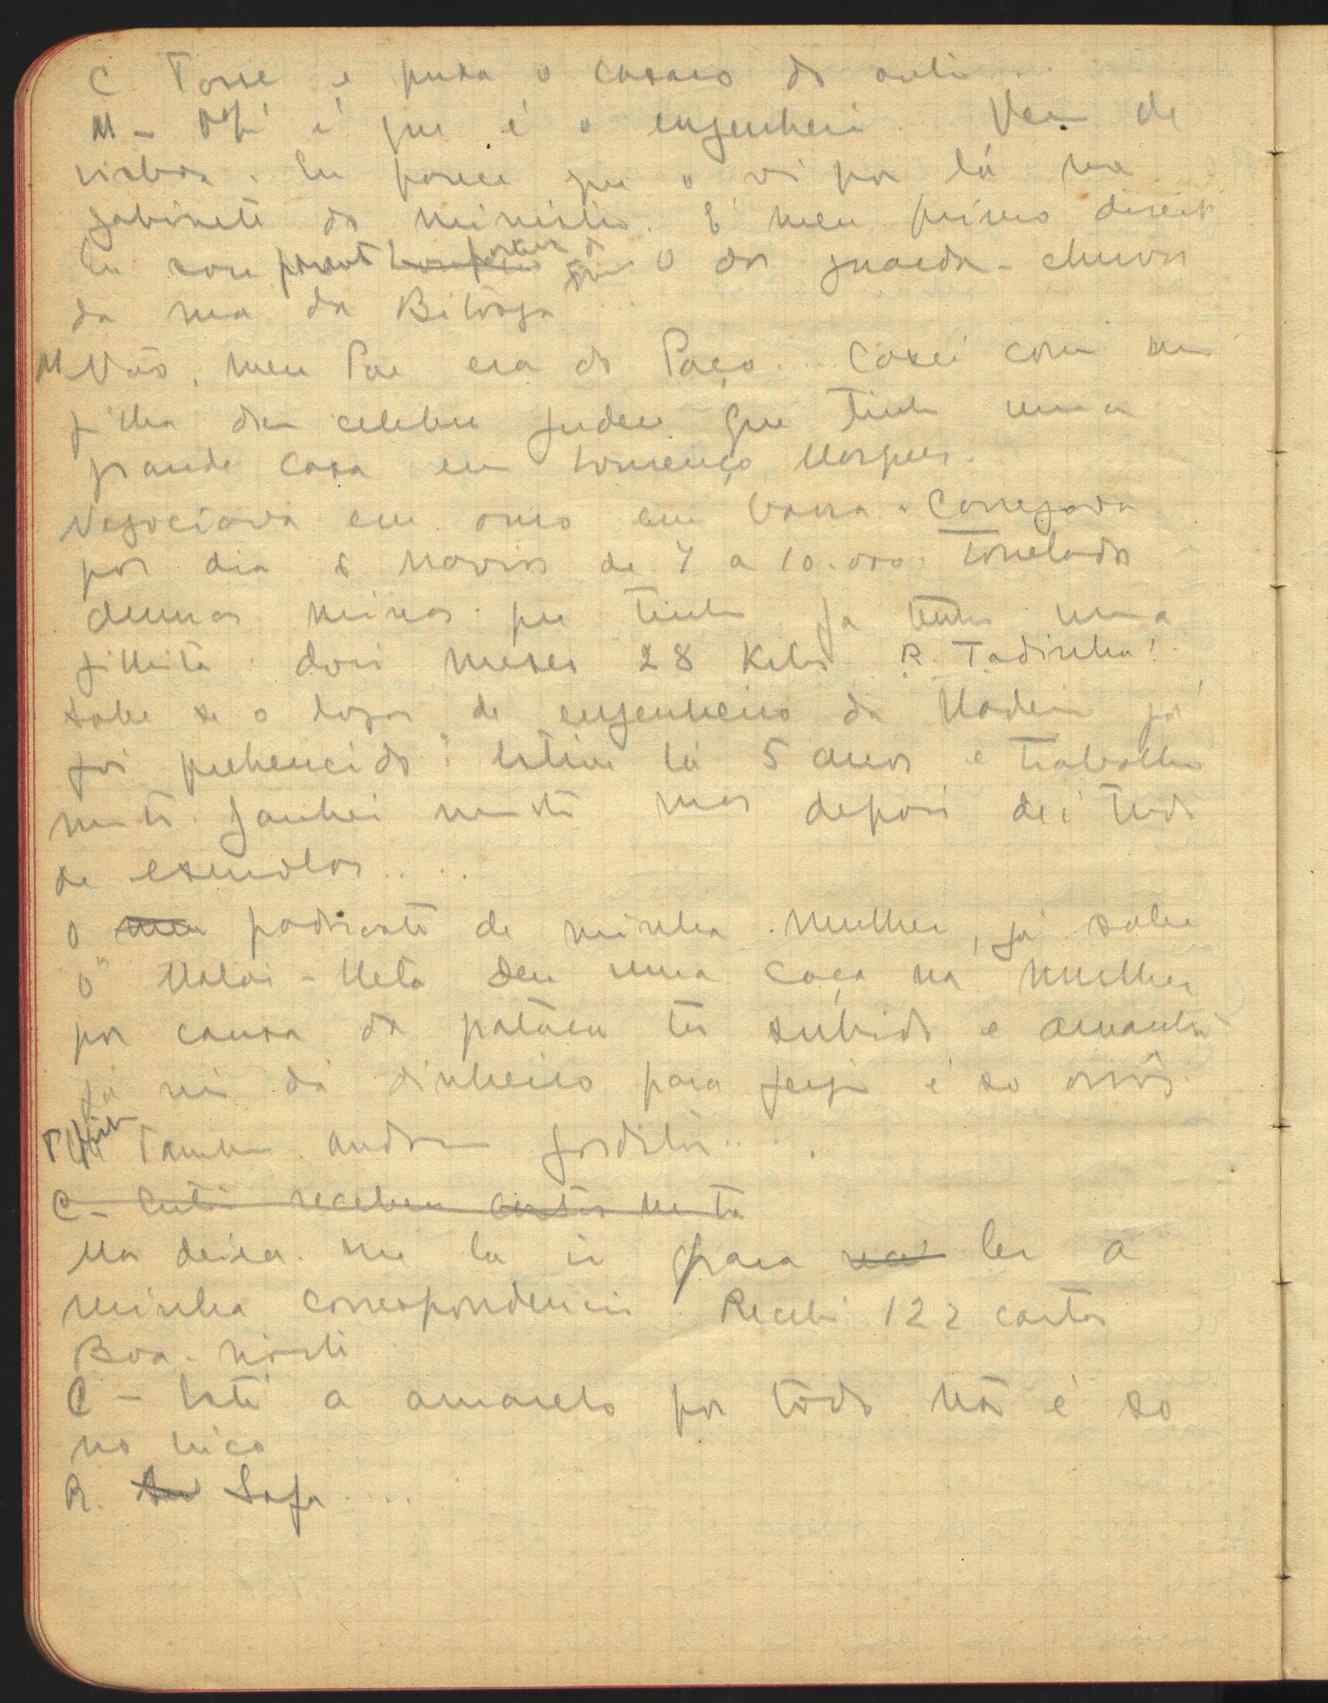 C Tosse e puxa o casaco do outro ...
M - é que é o engenheiro. Vem de
Lisboa. Eu parece que o vi por lá no
gabinete do ministro. É meu primo direito
Eu sou parente O dos guarda-chuvas
da rua da Bitesga ...
M Não, meu Pae era do Paço... Casei com uma
filha dum celebre judeu que tinha uma
grande casa em Lourenço Marques.
Negociava em ouro em barra. Carregava
por dia navios de 7 a 10.000 toneladas
dumas minas que tinha já tenho uma
filhita dois meses 28 Kilos R. Tadinha!
Sabe se o logar de engenheiro da Madeira já
foi prehencido? Estive lá 5 anos e trabalhei
muito. Ganhei muito mas depois dei tudo
de esmolas....
O meu padrasto de minha mulher, já sabe
o Malai-Meta deu uma coça na mulher
por causa da pataca ter subido e amanhã
já não dá dinheiro para é só arroz
Tambem andam gorditos....
C - Então recebeu cartas muitas
Mas deixa-me lá ir para ler a
minha correspondencia. Recebi 122 cartas
Boa-noite
C - Está amarelo por todo. Não é só
no bico
R. Safa ....